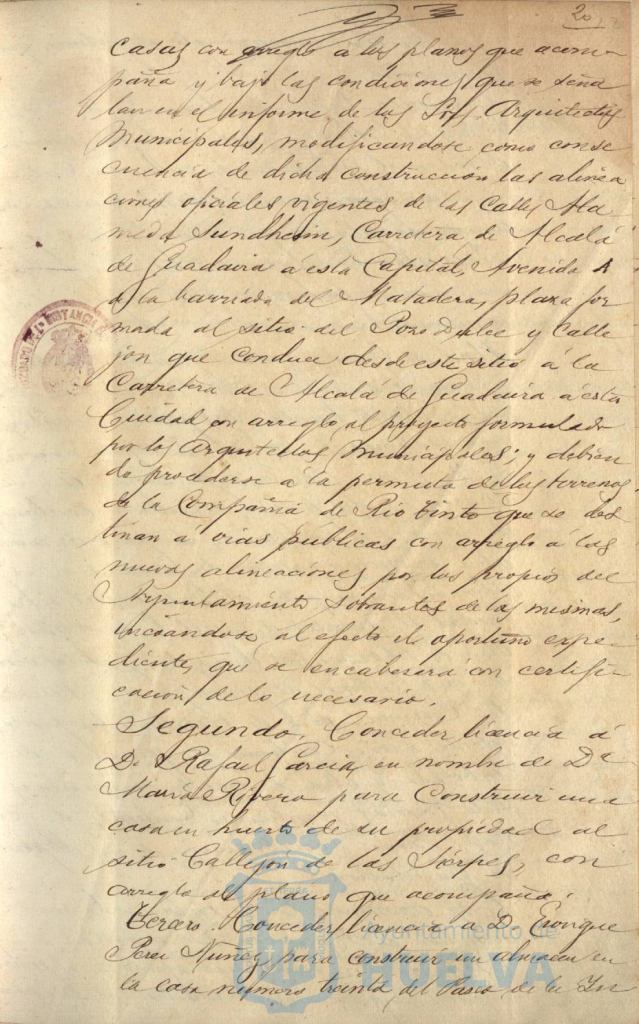 20
casas con arreglo á los planos que acom-
paña y bajo las condiciones que se seña
lan en el informe de los Sres Arquitectos
Municipales, modificandose como conse
cuencia de dicha construcción las alinea
ciones oficiales vigentes de las Calles Ala
meda Sundheim, Carretera de Alcalá
de Guadaira a esta Capital, Avenida A
de la barriada del Matadero, plaza for
mada al sitio del Pozo Dulce y Calle
jon que conduce desde este sitio á la
Carretera de Alcalá de Guadaira á esta
Ciudad con arreglo al proyecto formulado
por los Arquitectos Municipales; y debien
do procederse á la permuta de los terrenos
de la Compañia de Rio Tinto que se des
tinan á vias públicas con arreglo á las
nuevas alineaciones por los propios del
Ayuntamiento sobrantes de las mismas,
incoándose al efecto el oportuno expe-
diente, que se encabezará con certifi-
cación de lo necesario.
Segundo. Conceder licencia á
D. Rafael Garcia, en nombre de Dª
Maria Rivero para construir una
casa en huerto de su propiedad al
sitio Callejón de las Sierpes, con
arreglo al plano que acompaña.
Tercero. Conceder licencia a D. Enrique
Perez Nuñez para construir un almacen en
la casa número treinta del Paseo de la
Ayuntamiento de
HUELVA